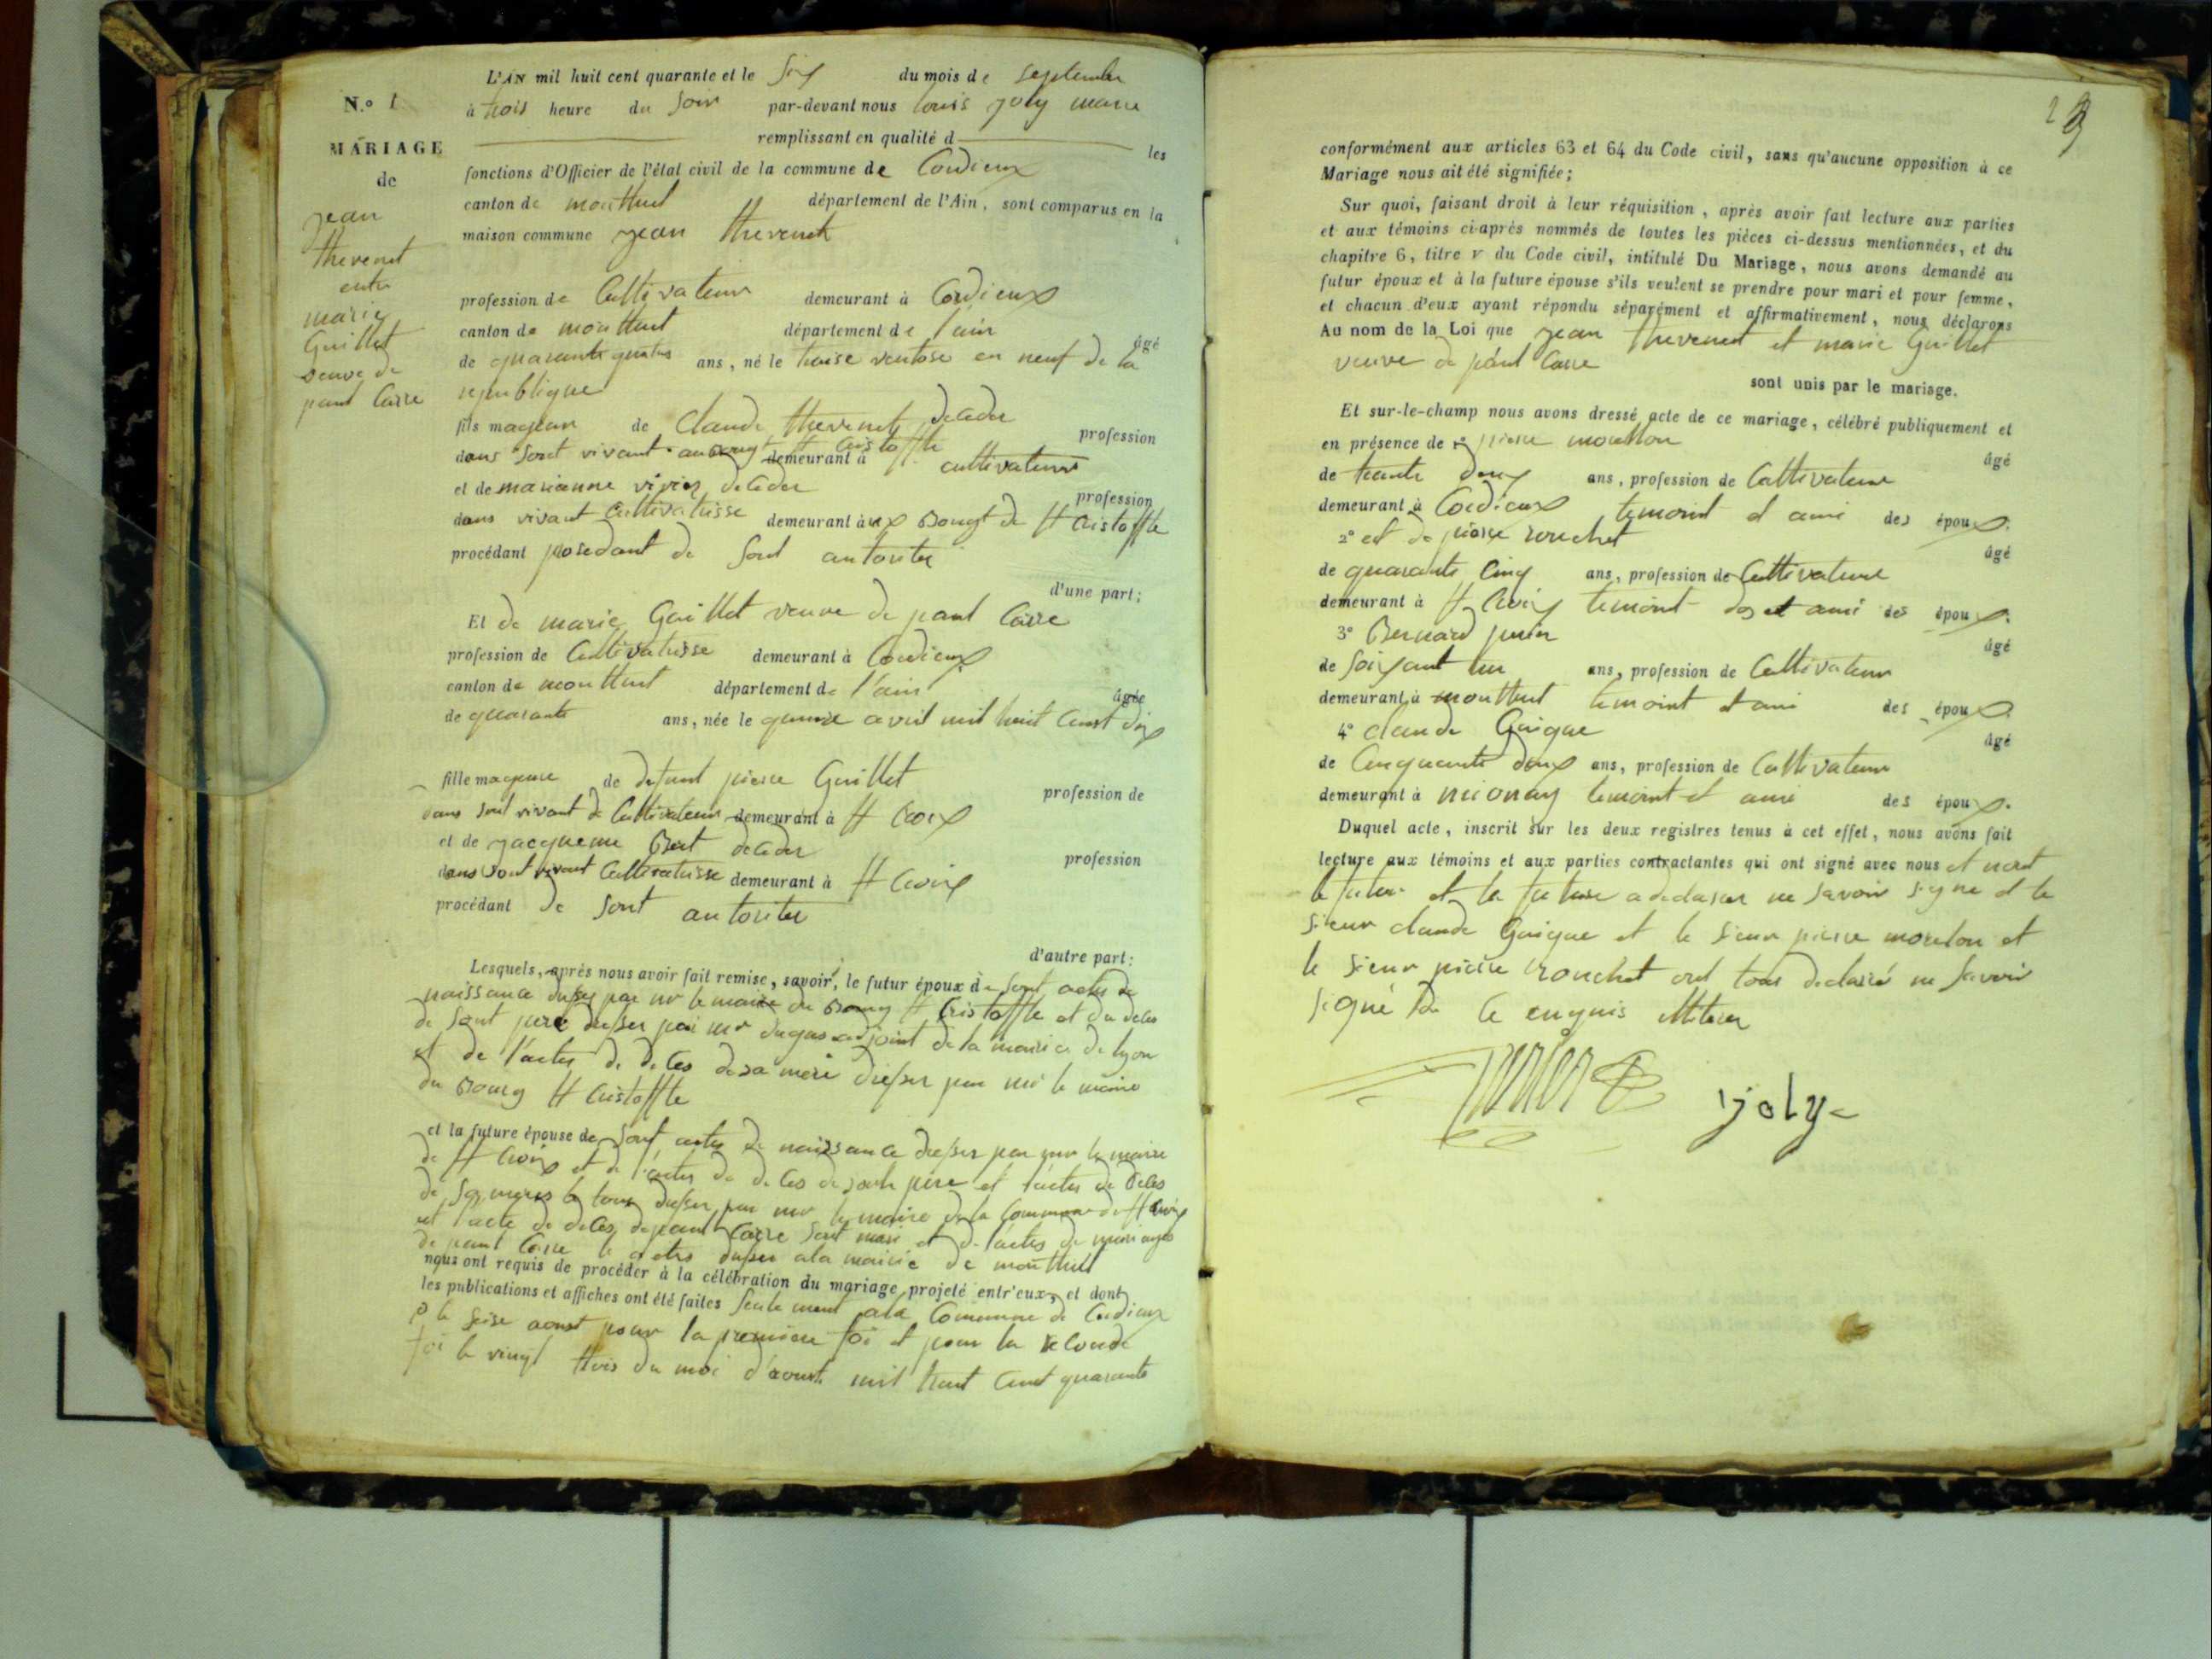 N.o 1
MARIAGE
de
jean
thevenet
entre
marie
Guillet
veuve de
paul Carre
L'AN mil huit cent quarante et le six du mois de septembre
à trois heure du soir par-devant nous louis joly maire
remplissant en qualité d les
fonctions d'Officier de l'état civil de la commune de Cordieux
canton de montluel département de l'Ain, sont comparus en la
maison commune jean thevenet
profession de Cultivateur demeurant à Cordieux
canton de montluel département de l'ain âgé
de quarante ans, né le treise ventose en neuf de la
republique
fils majeur de Claude thevenet deceder
profession
dans sont vivant au Bourg St Cristoffle demeurant à cultivateur
et de marianne deceder
profession
dans vivant Cultivatrisse demeurant aux Bougt de St Cristoffle
procédant posedant de sont autoriter
d'une part;
Et de marie Guillet veuve de paul Carre
profession de Cultivatrisse demeurant à Cordieux
canton de montluel département de l'ain âgée
de quarante ans, née le quinse avril mil huit Cent dix
fille majeure de defunt pierre Guillet
profession de
dans sont vivant de Cultivateur demeurant à St Croix
et de jacqueme deceder
profession
dans sont vivant Cultivatrisse demeurant à St Croix
procédant de sont autoriter
d'autre part:
Lesquels, après nous avoir fait remise, savoir, le futur époux de sont actes de
naissance dresser par mr le maire du Bourg St Cristoffle et du deces
de sont pere dresser par mr adjoint de la mairie de lyon
et de l'actes de deces de sa mere dresser par mr le maire
du Bourg St Cristoffle
et la future épouse de sont actes de naissance dresser par mr le maire
de St Croix et de l'actes de deces de sont pere et l'actes de deces
de sa meres le tous dresser par mr le maire de la Commune de St Croix
et l'acte de deces de paul Carre sont mari et de l'actes de mariages
de paul Carre le actes dresser a la mairie de montluel
nous ont requis de procéder à la célébration du mariage projeté entr'eux, et dont
les publications et affiches ont été faites seule ment a la Commune de Cordieux
le seise aoust pour la premiere foi et pour la seconde
foi le vingt trois du moi d'aoust mil huit Cent quarante
conformément aux articles 63 et 64 du Code civil, sans qu'aucune opposition à ce
Mariage nous ait été signifiée;
Sur quoi, faisant droit à leur réquisition, après avoir fait lecture aux parties
et aux témoins ci-après nommés de toutes les pièces ci-dessus mentionnées, et du
chapitre 6, titre V du Code civil, intitulé Du Mariage, nous avons demandé au
futur époux et à la future épouse s'ils veulent se prendre pour mari et pour femme,
et chacun d'eux ayant répondu séparément et affirmativement, nous déclarons
Au nom de la Loi que jean thevenet et marie Guillet
veuve de paul Carre
sont unis par le mariage.
Et sur-le-champ nous avons dressé acte de ce mariage, célébré publiquement et
en présence de 1° pierre moullon
âgé
de trante deux ans, profession de Cultivateur
demeurant à Cordieux temoint et ami des époux.
2° et de pierre
âgé
de quarante Cinq ans, profession de Cultivateur
demeurant à St Croix temoint et ami des époux.
3° Bernard
âgé
de soixant un ans, profession de Cultivateur
demeurant à montluel temoint et ami des époux.
4° claude Guigue
âgé
de Cinquante deux ans, profession de Cultivateur
demeurant à mionay temoint et ami des époux.
Duquel acte, inscrit sur les deux registres tenus à cet effet, nous avons fait
lecture aux témoins et aux parties contractantes qui ont signé avec nous et nont
le futur et la future a declarer ne savoir signe et le
sieur claude Guigue et le sieur pierre moulon et
le sieur pierre ont tous declaré ne savoir
signé de ce enquis
joly